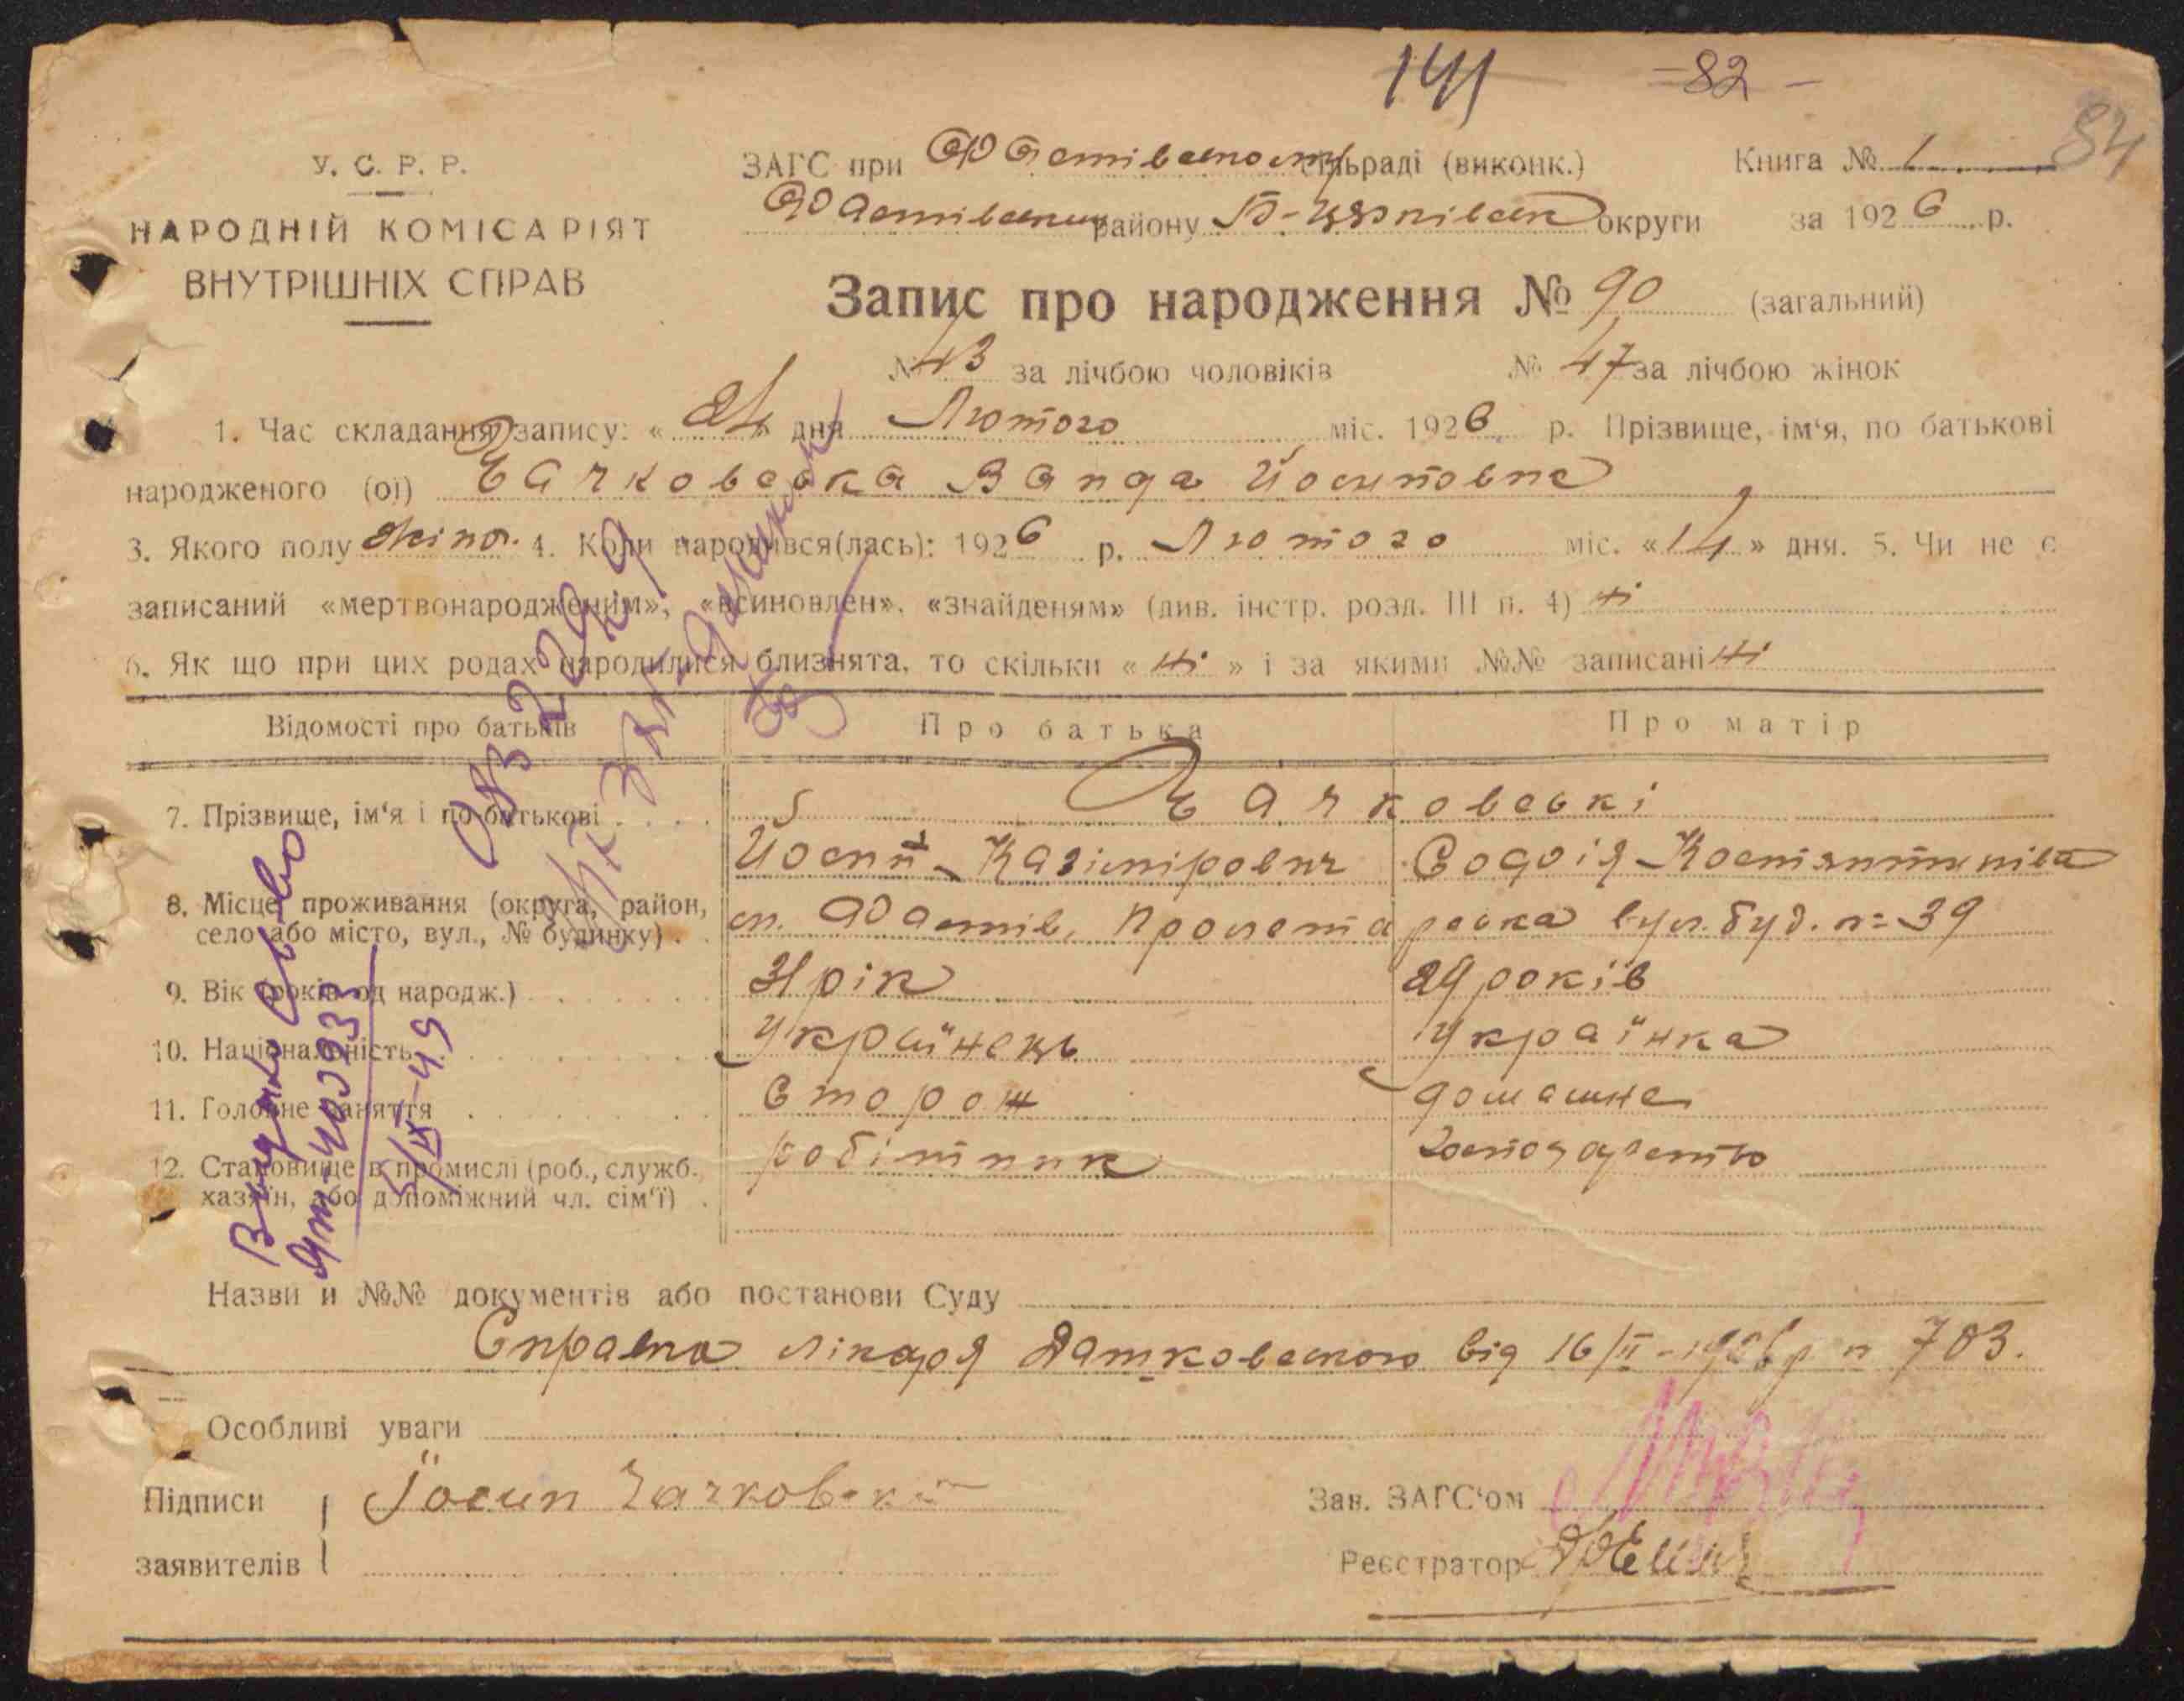 141 -82-
84
У. С. Р. Р.
НАРОДНІЙ КОМІСАРІЯТ
ВНУТРІШНІХ СПРАВ
ЗАГС при Фастівському сільраді (виконк.) Книга № 1
Фастівський району Б-Церківськ округи за 1926 р.
Запис про народження № 90 (загальний)
№ 43 за лічбою чоловіків № 47 за лічбою жінок
1. Час складання запису: « 24 » дня Лютого міс. 1926 р. Прізвище, ім‘я, по батькові
народженого (ої) Гачковська Ванда Йосиповна
3. Якого полу жіноч. 4. Коли народився(лась): 1926 р. Лютого міс. «14» дня. 5. Чи не є
записаний «мертвонародженим», «всиновлен», «знайденям» (див. інстр. розд. III п. 4) ні
6. Як що при цих родах народилися близнята, то скільки « ні » і за якими №№ записані ні
Відомості про батьків Про батька Про матір
7. Прізвище, ім‘я і по батькові Гачковські
Йосип Казімірович Софія Костянтинівна
8. Місце проживання (округа, район,
село або місто, вул., № будинку) м. Фастів, Пролетарська вул. буд. n= 39
9. Вік (років од народж.) 31 рік 29 років
10. Національність Українець Українка
11. Головне заняття Сторож домашнє
12. Становище в промислі (роб., служб. робітник господарство
хазяїн, або допоміжний чл. сім‘ї)
Видано св-во
ЯТ-
5/IX-49
Назви й №№ документів або постанови Суду
Справка лікаря Датковського від 16/II-1926 р n 703.
Особливі уваги
Підписи Йосип Гачковський Зав. ЗАГС‘ом
заявителів Реєстратор